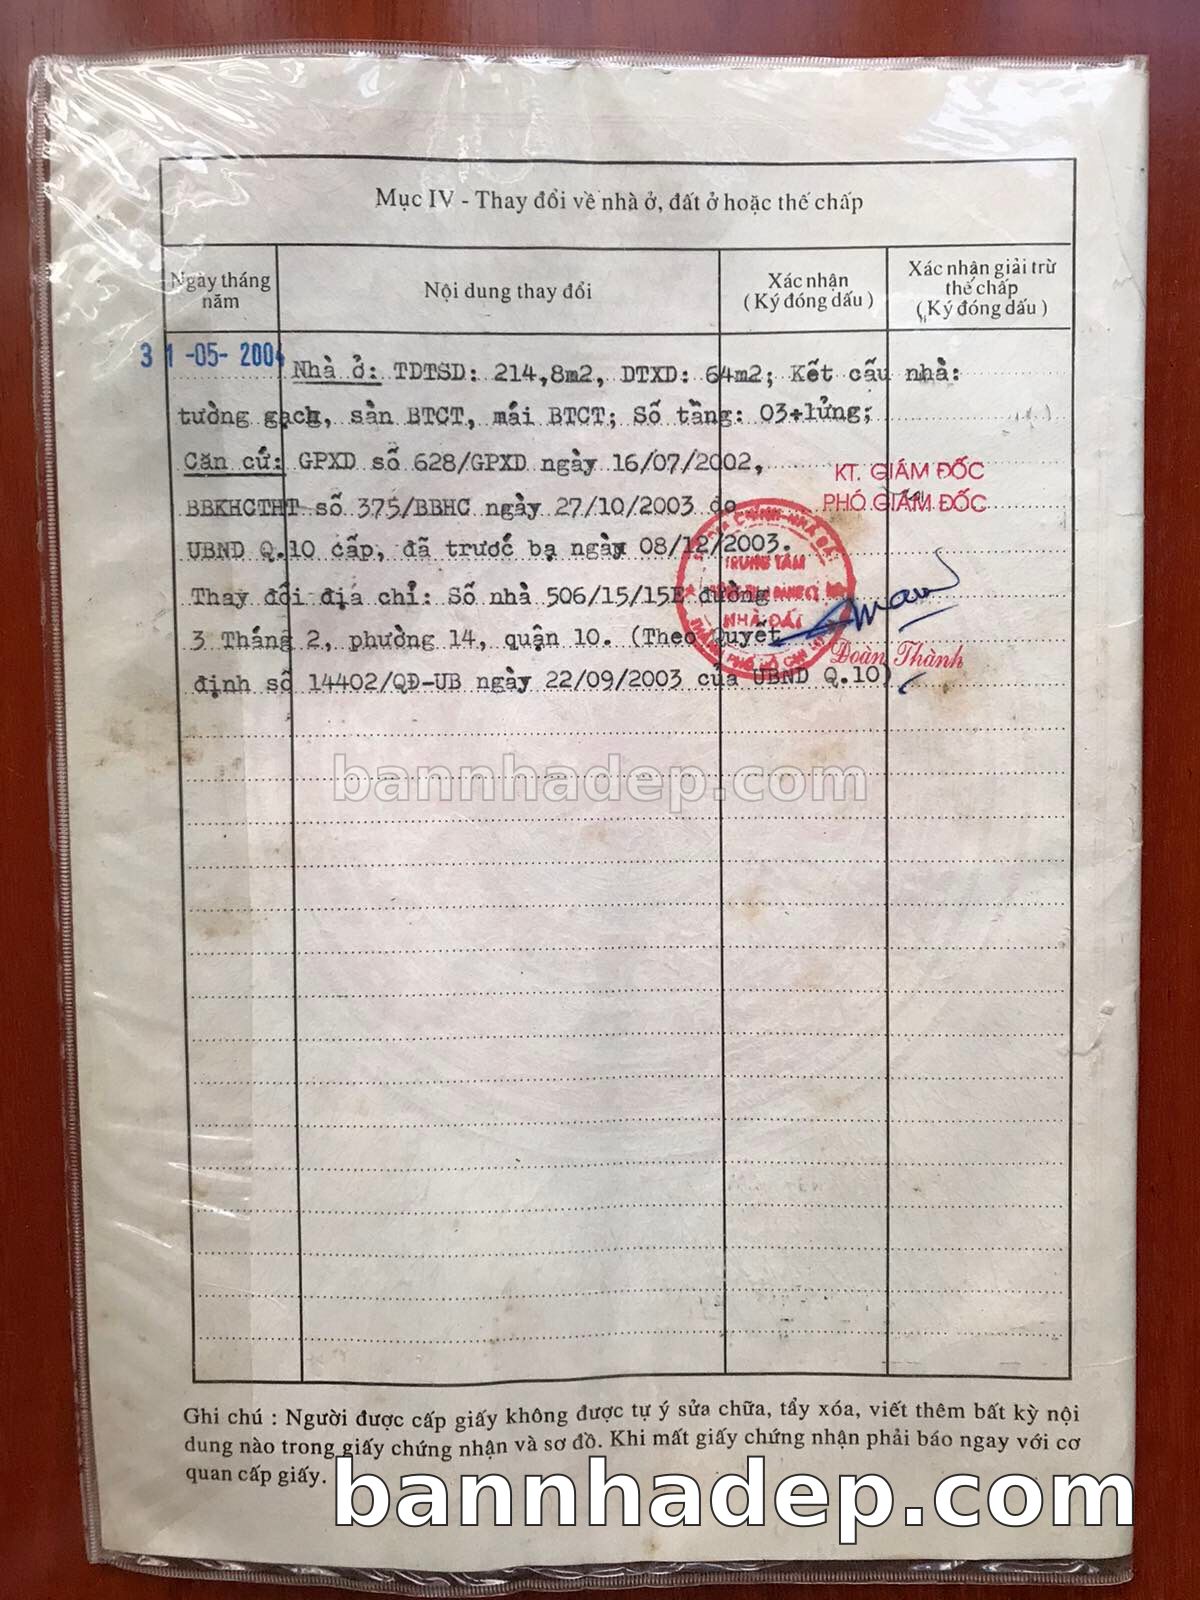 Mục IV - Thay đổi về nhà ở, đất ở hoặc thế chấp
Ngày tháng
năm
Nội dung thay đổi
Xác nhận
( Ký đóng dấu )
Xác nhận giải trừ
thế chấp
( Ký đóng dấu )
31-05-2004
Nhà ở: TDTSD: 214,8m2, DTXD: 64m2; Kết cấu nhà:
tường gạch, sàn BTCT, mái BTCT; Số tầng: 03+lửng;
Căn cứ: GPXD số 628/GPXD ngày 16/07/2002,
KT. GIÁM ĐỐC
BBKHCTHT số 375/BBHC ngày 27/10/2003 do
PHÓ GIÁM ĐỐC
UBND Q.10 cấp, đã trước bạ ngày 08/12/2003.
TRUNG TÂM
NHÀ ĐẤT
Thay đổi địa chỉ: Số nhà 506/15/15E đường
3 Tháng 2, phường 14, quận 10. (Theo Quyết
Đoàn Thành
định số 14402/QĐ-UB ngày 22/09/2003 của UBND Q.10)
bannhadep.com
Ghi chú : Người được cấp giấy không được tự ý sửa chữa, tẩy xóa, viết thêm bất kỳ nội
dung nào trong giấy chứng nhận và sơ đồ. Khi mất giấy chứng nhận phải báo ngay với cơ
quan cấp giấy.
bannhadep.com